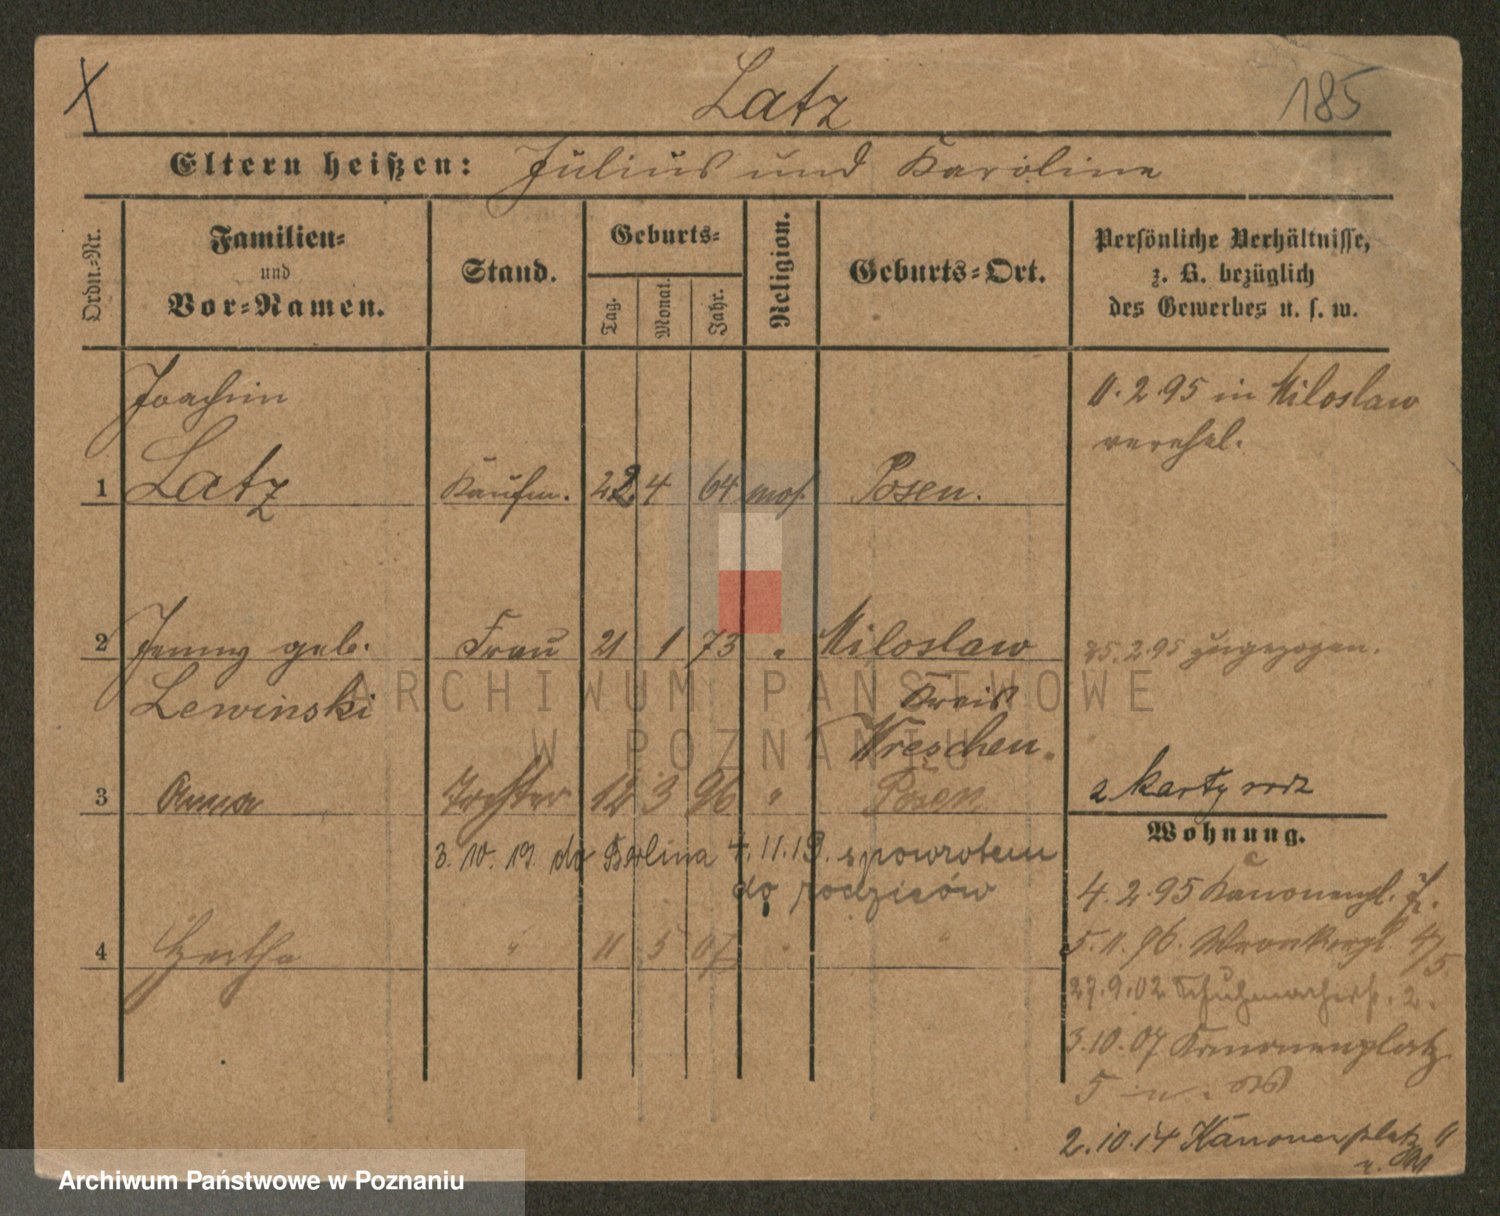 X
Latz
185
Eltern heißen: Julius und Karoline
Ordn.-Nr.
Familien-
und
Vor-Namen.
Stand.
Geburts-
Tag.
Monat.
Jahr.
Religion.
Geburts-Ort.
Persönliche Verhältnisse,
z. B. bezüglich
des Gewerbes u. s. w.
Joachim
1 Latz Kaufm. 22 4 64 mos. Posen.
11.2.95 in Miloslaw
verehel.
2 Jenny geb. Frau 21 1 73 " Miloslaw
Lewinski Kreis
Wreschen.
25.2.95 zugezogen.
3 Anna Tochter 12 3 96 " Posen
2 karty rodz
3.10.19. do Berlina 4.11.19. spowrotem
do rodziców
4 Hertha " 11 5 07 " "
Wohnung.
4.2.95 Kanonenpl.
5.11.96. Wronkerpl. 4/5
27.9.02 Schuhmacherstr. 2.
3.10.07 Kanonenplatz
5
2.10.14 Kanonenplatz 11
ARCHIWUM PAŃSTWOWE
W POZNANIU
Archiwum Państwowe w Poznaniu